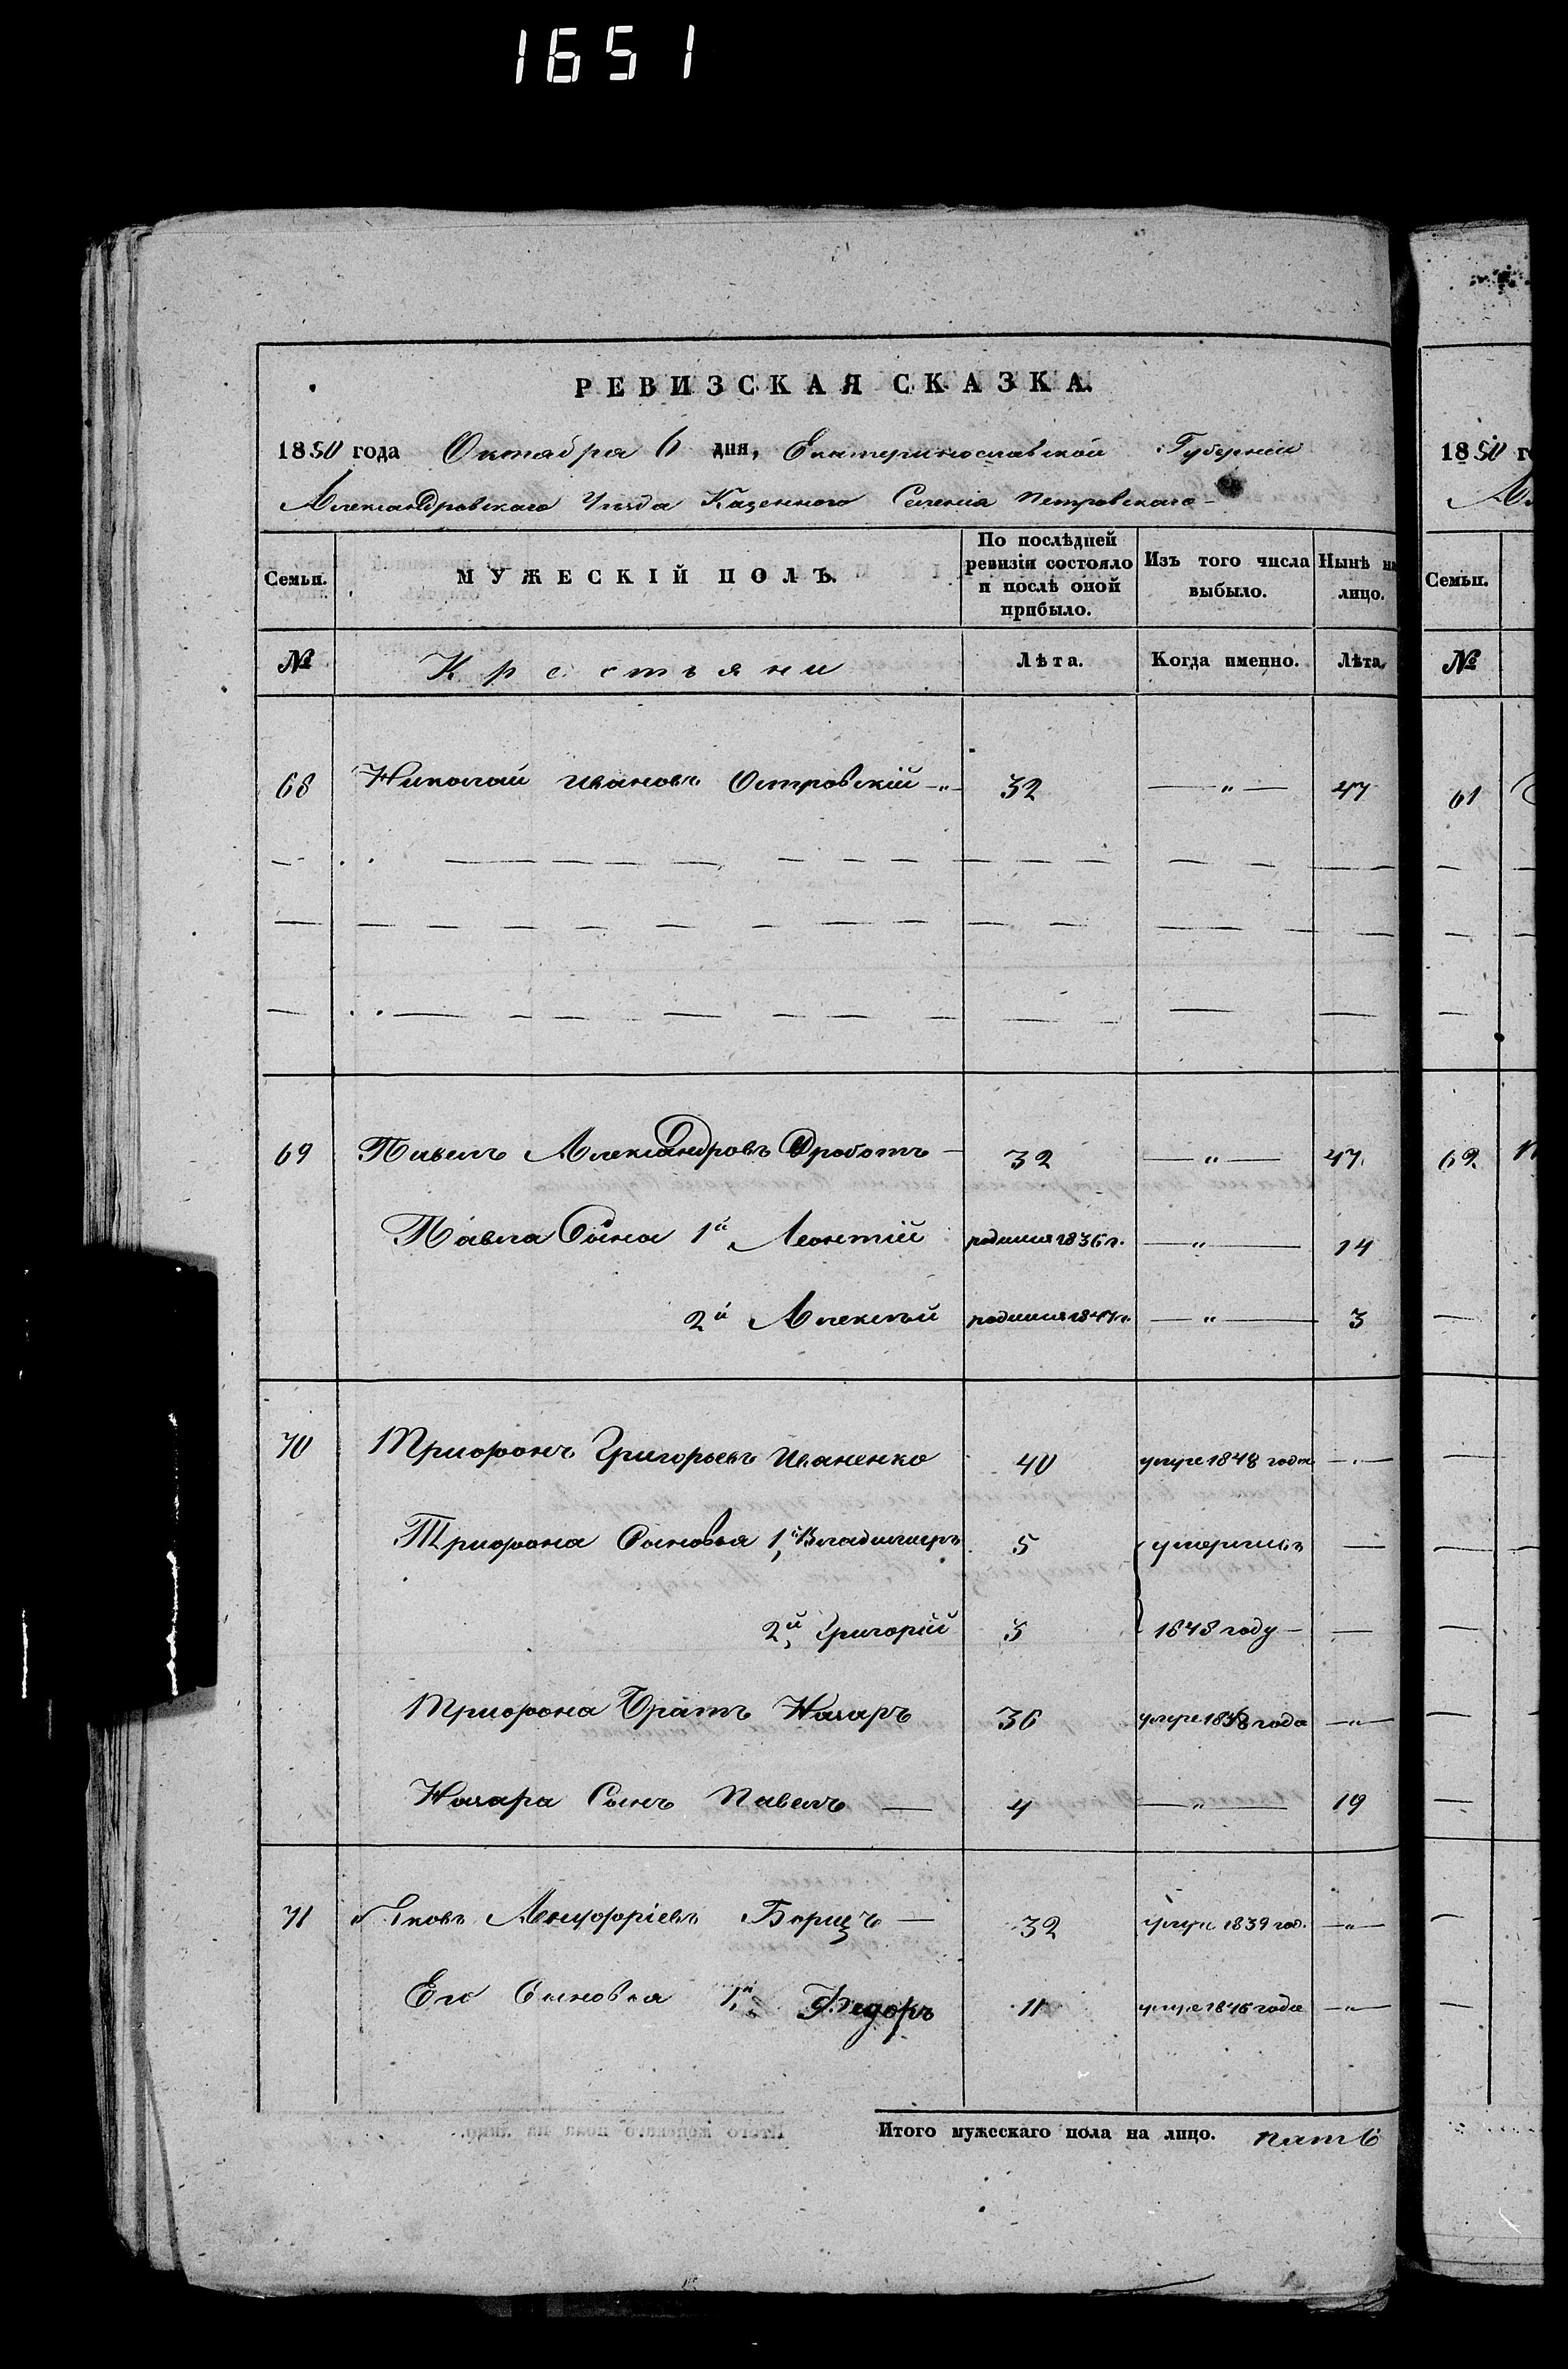 1651
РЕВИЗСКАЯ СКАЗКА.
1850 года Октября 6 дня, Екатеринославской Губернии
Александровскаго Уезда Казеннаго Селенія Петровскаго
Семьи. МУЖЕСКІЙ ПОЛЪ. По послѣдней ревизіи состояло и послѣ оной прибыло. Изъ того числа выбыло. Нынѣ на лицо.
№ Крестьяни Лѣта. Когда именно. Лѣта.
68 Николай Ивановъ Островскій 32 — " — 47
69 Павелъ Александровъ Дроботъ 32 — " — 47
Павла Сына 1й Леонтій родился 1836 г. — " — 14
2й Алексѣй родился 1847 г. — " — 3
70 Трифонъ Григорьевъ Иваненко 40 умре 1848 года — " —
Трифона Сыновья 1й Владимиръ 5 умерли въ —
2й Григорій 3 1848 году —
Трифона Братъ Назаръ 36 умре 1838 года — " —
Назара Сынъ Павелъ — 4 — " — 19
71 Яковъ Ануфріевъ Борщъ — 32 умре 1839 год. — " —
Его Сыновья 1й Федоръ 11 умре 1846 года — " —
Итого мужескаго пола на лицо. пять
1850 г
Семьи.
№
61
62